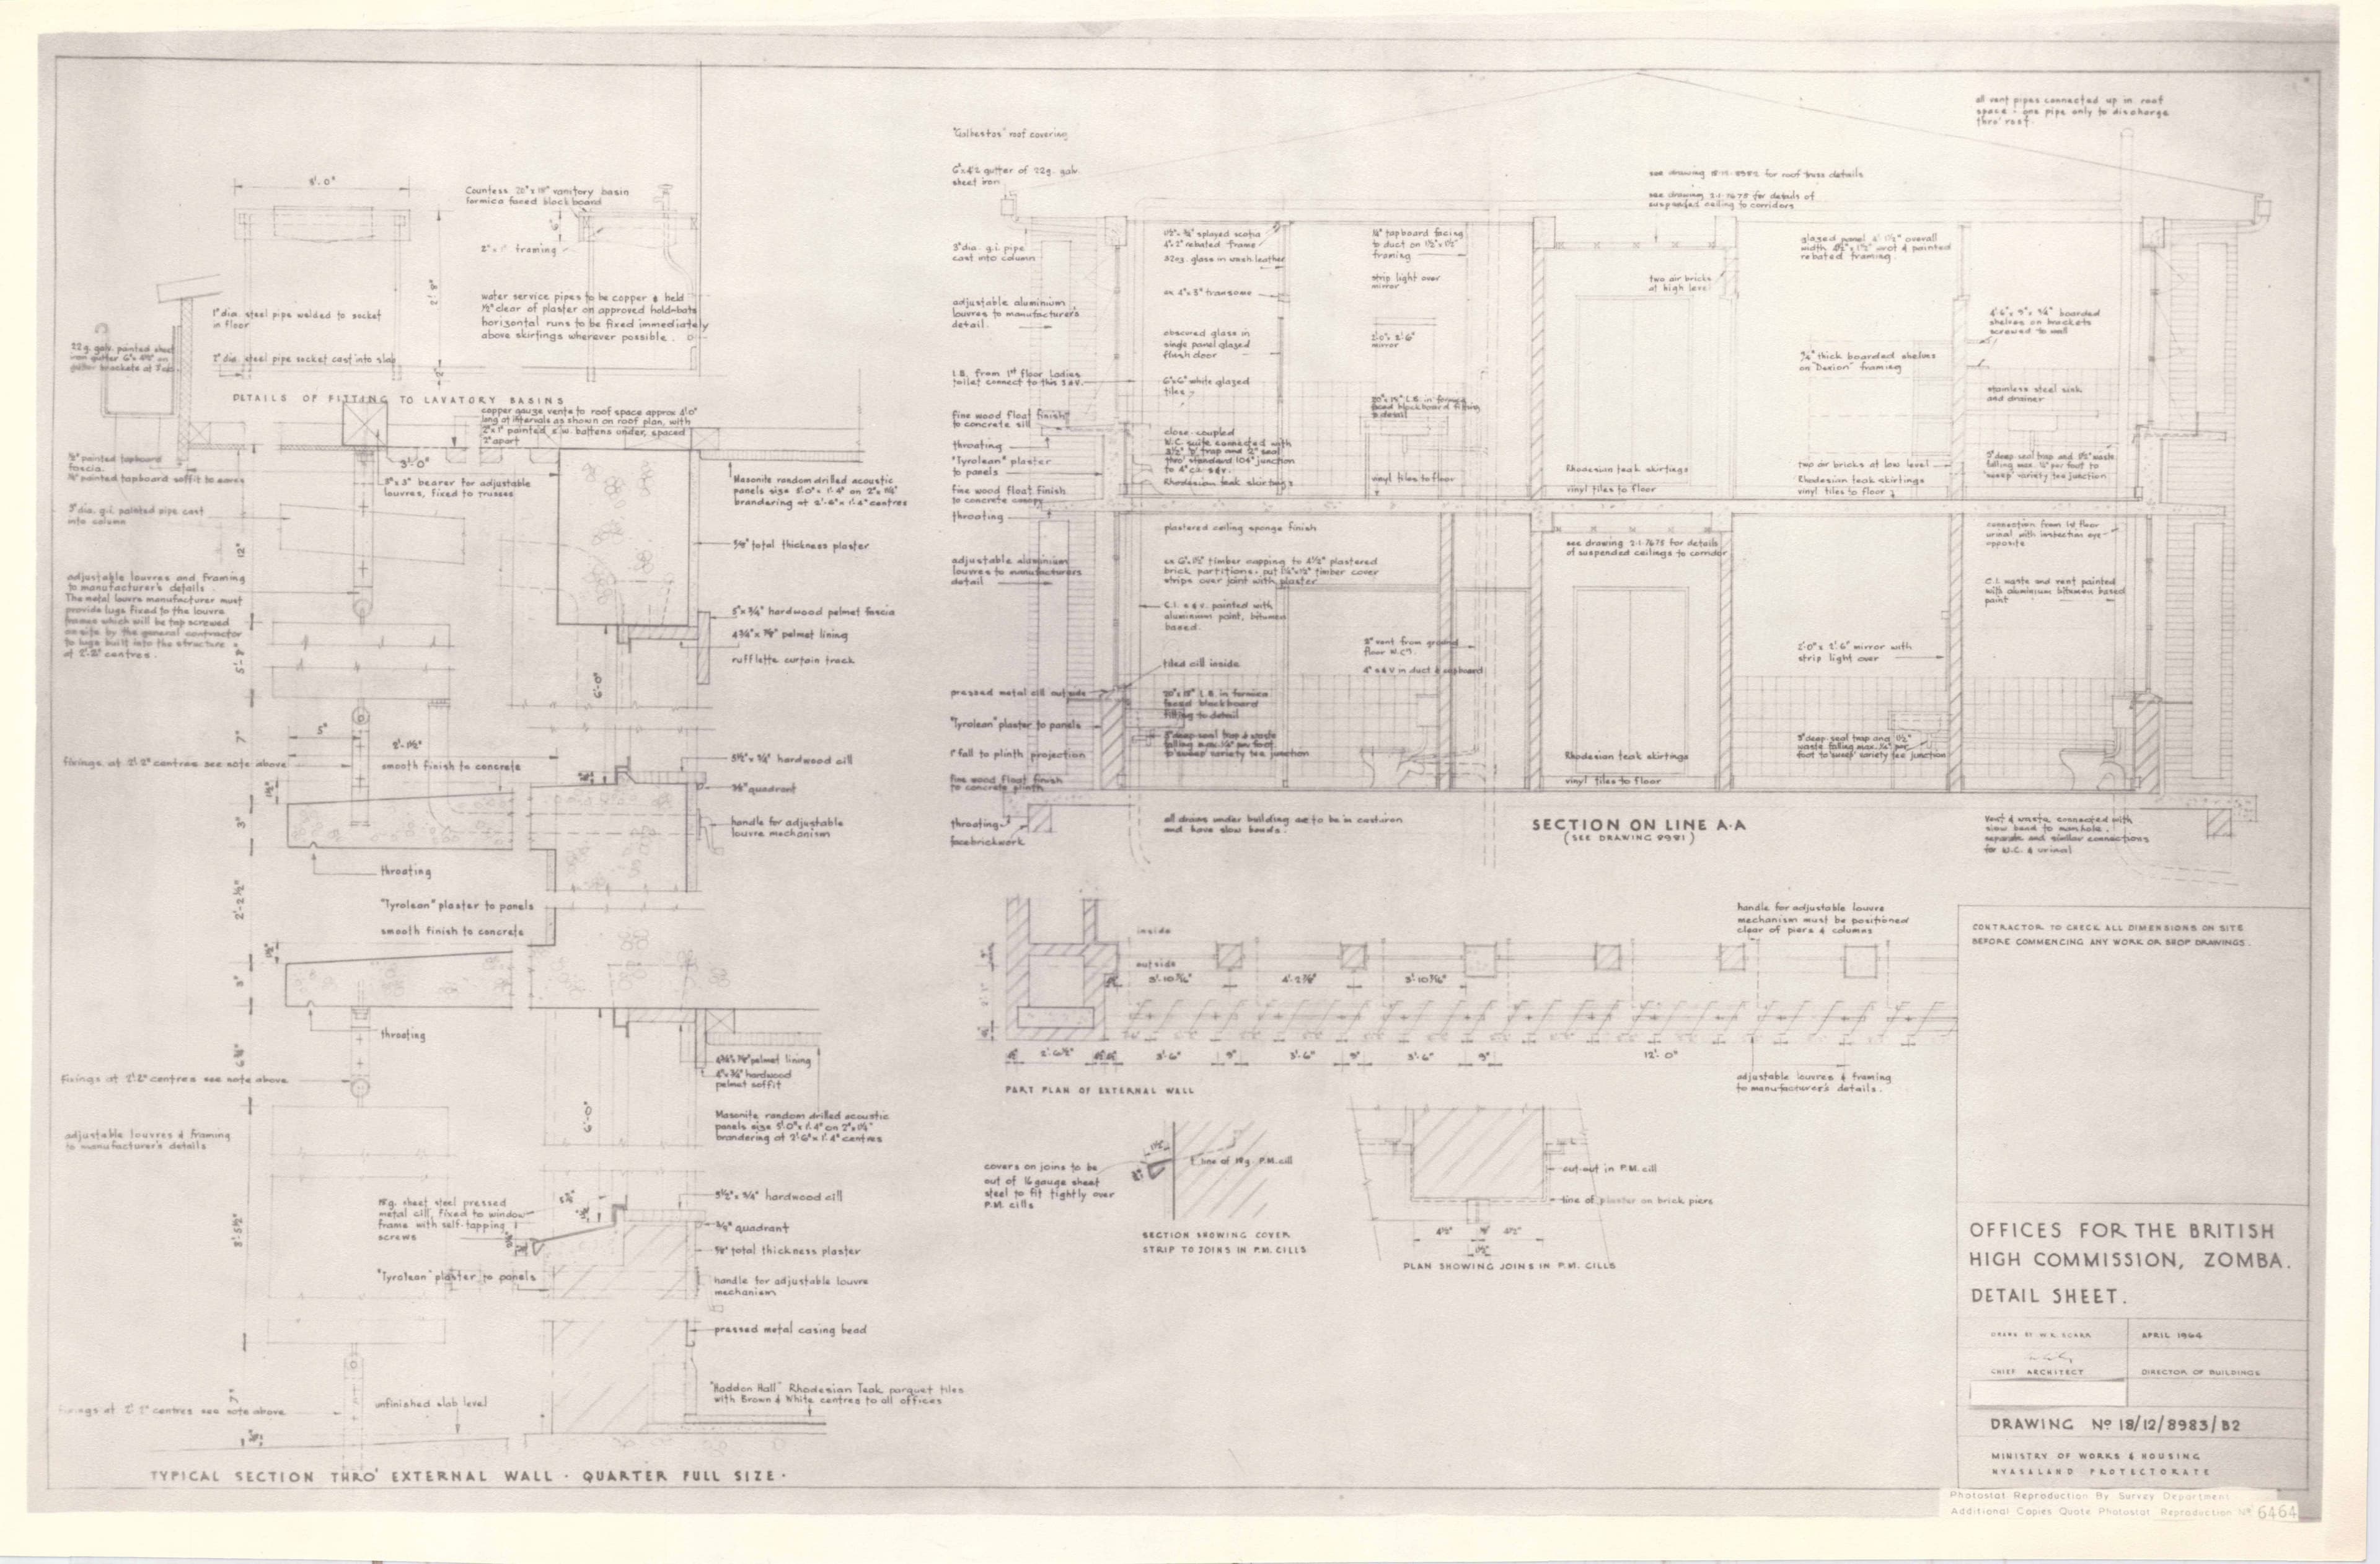 3'-0"
Countess 20" x 18" vanitory basin
formica faced blockboard
6"
framing
2'-8"
water service pipes to be copper & held
½" clear of plaster on approved holdbats
horizontal runs to be fixed immediately
above skirtings wherever possible.
1" dia. steel pipe welded to socket
in floor
2" dia. steel pipe socket cast into slab
DETAILS OF FITTING TO LAVATORY BASINS
copper gauze vents to roof space approx 4'.0"
long at intervals as shown on roof plan, with
2" x 1" painted s.w. battens under, spaced
2" apart
3'-0"
3" x 3" bearer for adjustable
louvres, fixed to trusses
½" painted tapboard
fascia.
painted tapboard soffit to eaves
3" dia. g.i. painted pipe cast
into column
12"
adjustable louvres and framing
to manufacturer's details.
The metal louvre manufacturer must
provide lugs fixed to the louvre
frames which will be tap screwed
on site by the general contractor
to lugs built into the structure
at 2'.2" centres.
Masonite random drilled acoustic
panels size 5'.0" x 1'.4" on 2" x 1½"
brandering at 2'-6" x 1'.4" centres
5/8" total thickness plaster
5" x ¾" hardwood palmet fascia
palmet lining
rufflette curtain track
6'-0"
7"
5"
2'-1½"
fixings at 2'.2" centres see note above
smooth finish to concrete
5½" x ¾" hardwood cill
¾" quadrant
handle for adjustable
louvre mechanism
1½"
3"
throating
2'-2½"
"Tyrolean" plaster to panels
smooth finish to concrete
1½"
3"
throating
fixings at 2'.2" centres see note above
palmet lining
hardwood
palmet soffit
6'-0"
Masonite random drilled acoustic
panels size 5'.0" x 1'.4" on 2" x 1½"
brandering at 2'.6" x 1'.4" centres
adjustable louvres & framing
to manufacturer's details
8'-5½"
sheet steel pressed
metal cill, fixed to window
frame with self-tapping
screws
5½" x ¾" hardwood cill
¾" quadrant
5/8" total thickness plaster
"Tyrolean" plaster to panels
handle for adjustable louvre
mechanism
pressed metal casing bead
"Haddon Hall" Rhodesian Teak parquet tiles
with Brown & White centres to all offices
7"
at 2'.2" centres see note above
unfinished slab level
TYPICAL SECTION THRO' EXTERNAL WALL · QUARTER FULL SIZE ·
"Galbestos" roof covering
gutter of 22g. galv.
sheet iron
3" dia. g.i. pipe
cast into column
adjustable aluminium
louvres to manufacturer's
detail.
L.B. from 1st floor Ladies
toilet connect to this s & v.
fine wood float finish
to concrete sill
throating
"Tyrolean" plaster
to panels
fine wood float finish
to concrete canopy
throating
adjustable aluminium
louvres to manufacturers
detail
pressed metal cill outside
"Tyrolean" plaster to panels
1" fall to plinth projection
fine wood float finish
to concrete plinth
throating
facebrickwork
splayed scotia
4" x 2" rebated frame
32oz. glass in wash leather
ex 4" x 3" transome
obscured glass in
single panel glazed
flush door
6" x 6" white glazed
tiles
close-coupled
W.C. suite connected with
to 4" c.i. s & v.
Rhodesian teak skirtings
plastered ceiling sponge finish
ex 6" x 1½" timber capping to 4½" plastered
brick partitions, put timber cover
strips over joint with plaster
C.I. s & v. painted with
aluminium paint, bitumen
based.
tiled cill inside
20" x 18" L.B. in formica
faced blockboard
fitting to detail
all drains under building are to be in castiron
and have slow bends.
tapboard facing
to duct on 1½" x 1½"
framing
strip light over
mirror
2'.0" x 2'.6"
mirror
20" x 18" L.B. in formica
faced blockboard fitting
to detail
vinyl tiles to floor
2" vent from ground
floor W.C's.
4" s & v in duct & cupboard
see drawing for roof truss details
see drawing 2.1.7675 for details of
suspended ceiling to corridors
two air bricks
at high level
Rhodesian teak skirtings
vinyl tiles to floor
see drawing 2.1.7675 for details
of suspended ceilings to corridor
Rhodesian teak skirtings
vinyl tiles to floor
all vent pipes connected up in roof
space - one pipe only to discharge
thro' roof.
glazed panel 4' 1½" overall
width, 4½" x 1½" wrot & painted
rebated framing.
¾" thick boarded shelves
on "Dexion" framing
two air bricks at low level
Rhodesian teak skirtings
vinyl tiles to floor
4'.6" x 9" x ¾" boarded
shelves on brackets
screwed to wall
stainless steel sink
and drainer
3" deep seal trap and 1½" waste
falling max. ¼" per foot to
"sweep" variety tee junction
connection from 1st floor
urinal with inspection eye
opposite
C.I. waste and vent painted
with aluminium bitumen based
paint
2'.0" x 2'.6" mirror with
strip light over
3" deep seal trap and 1½"
waste falling max. ¼" per
foot to "sweep" variety tee junction
SECTION ON LINE A-A
(SEE DRAWING 8981)
Vent & waste connected with
slow bend to manhole.
separate and similar connections
for W.C. & urinal
inside
outside
4'-2⅞"
2'-6½"
3'-6"
9"
3'-6"
9"
3'-6"
9"
12'-0"
handle for adjustable louvre
mechanism must be positioned
clear of piers & columns
adjustable louvres & framing
to manufacturer's details.
PART PLAN OF EXTERNAL WALL
covers on joins to be
out of 16 gauge sheet
steel to fit tightly over
P.M. cills
line of 18g. P.M. cill
SECTION SHOWING COVER
STRIP TO JOINS IN P.M. CILLS
cut out in P.M. cill
line of plaster on brick piers
4½"
4½"
PLAN SHOWING JOINS IN P.M. CILLS
CONTRACTOR TO CHECK ALL DIMENSIONS ON SITE
BEFORE COMMENCING ANY WORK OR SHOP DRAWINGS.
OFFICES FOR THE BRITISH
HIGH COMMISSION, ZOMBA.
DETAIL SHEET.
DRAWN BY W.R. SCARR
APRIL 1964
CHIEF ARCHITECT
DIRECTOR OF BUILDINGS
DRAWING Nº 18/12/8983/B2
MINISTRY OF WORKS & HOUSING
NYASALAND PROTECTORATE
Photostat Reproduction By Survey Department
Additional Copies Quote Photostat Reproduction Nº 6464